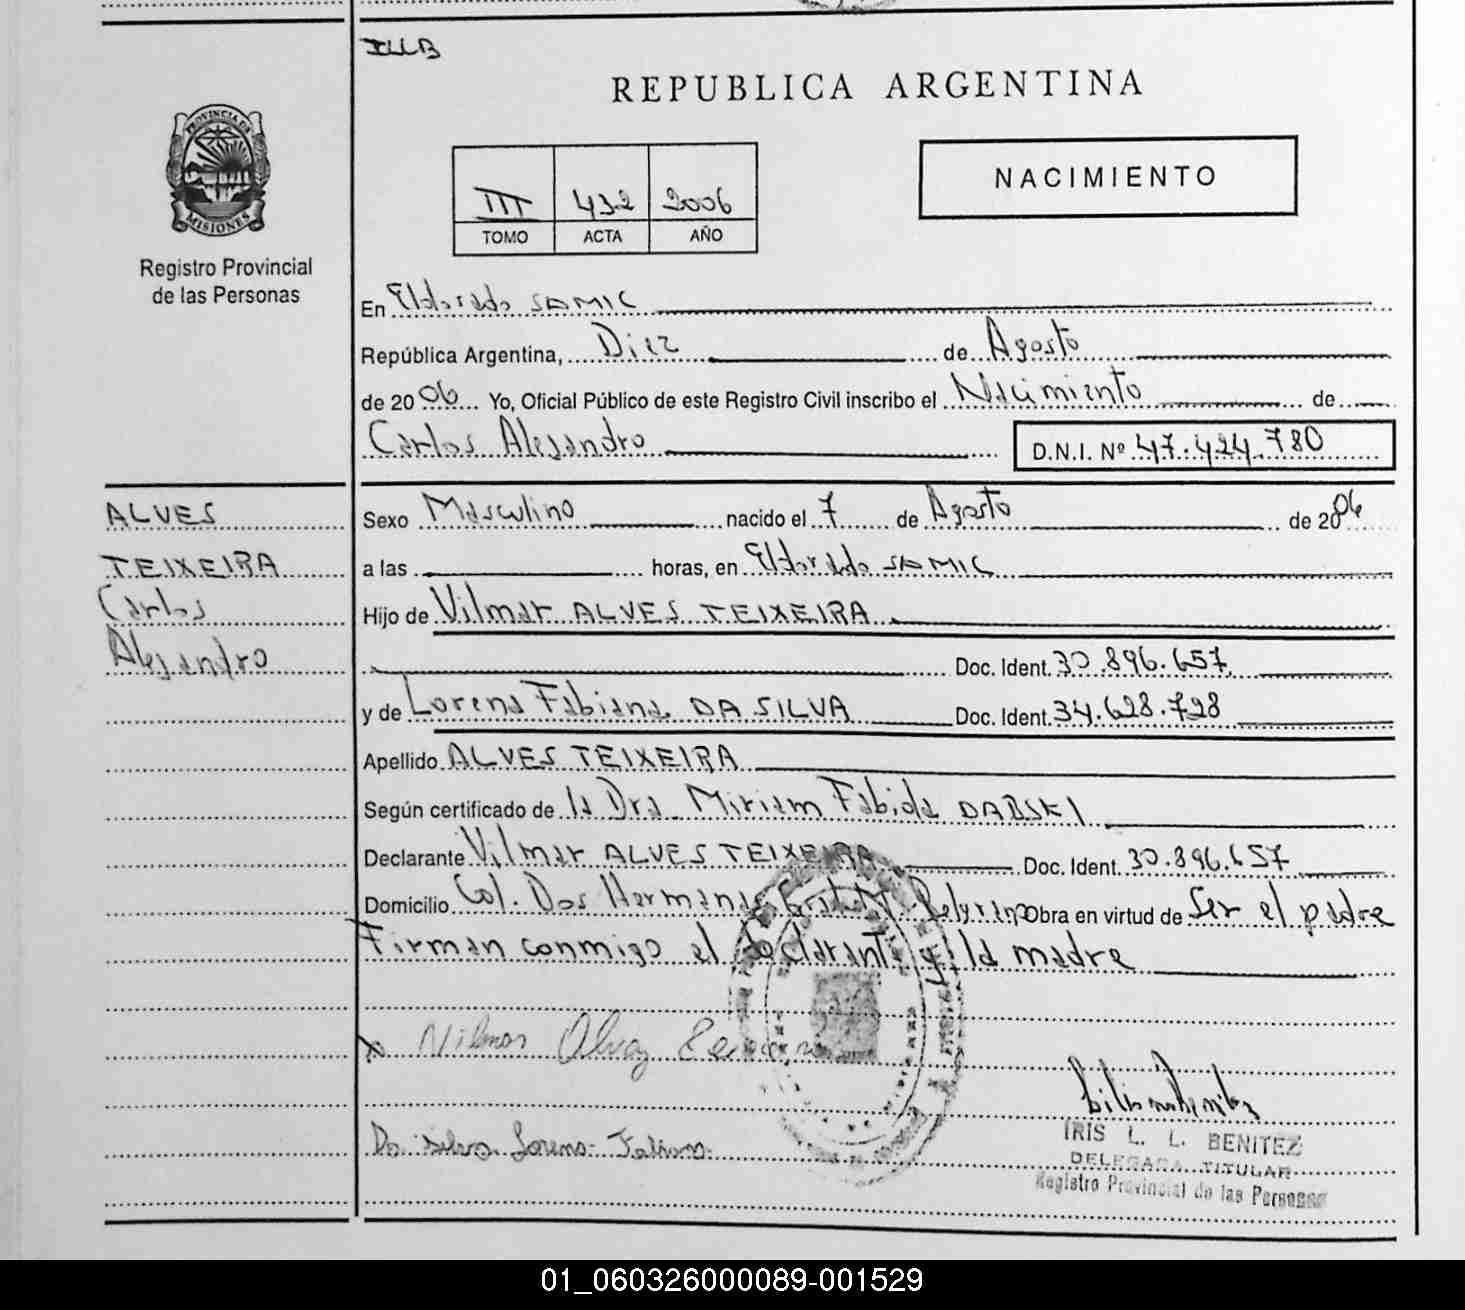 ILLB
REPUBLICA ARGENTINA
PROVINCIA DE
MISIONES
Registro Provincial
de las Personas
III 432 2006
TOMO ACTA AÑO
NACIMIENTO
En Eldorado SAMIC
República Argentina, Diez de Agosto
de 2006 Yo, Oficial Público de este Registro Civil inscribo el Nacimiento de
Carlos Alejandro D.N.I. Nº 47.424.780
ALVES
TEIXEIRA
Carlos
Alejandro
Sexo Masculino nacido el 7 de Agosto de 2006
a las horas, en Eldorado SAMIC
Hijo de Vilmar ALVES TEIXEIRA
Doc. Ident. 30.896.657
y de Lorena Fabiana DA SILVA Doc. Ident. 34.628.728
Apellido ALVES TEIXEIRA
Según certificado de la Dra. Miriam Fabiola DABSKI
Declarante Vilmar ALVES TEIXEIRA Doc. Ident. 30.896.657
Domicilio Col. Dos Hermanas Obra en virtud de Ser el padre
Firman conmigo el declarante y la madre
Da Silva Lorena Fabiana
IRIS L. L. BENITEZ
DELEGADA TITULAR
Registro Provincial de las Personas
01_060326000089-001529